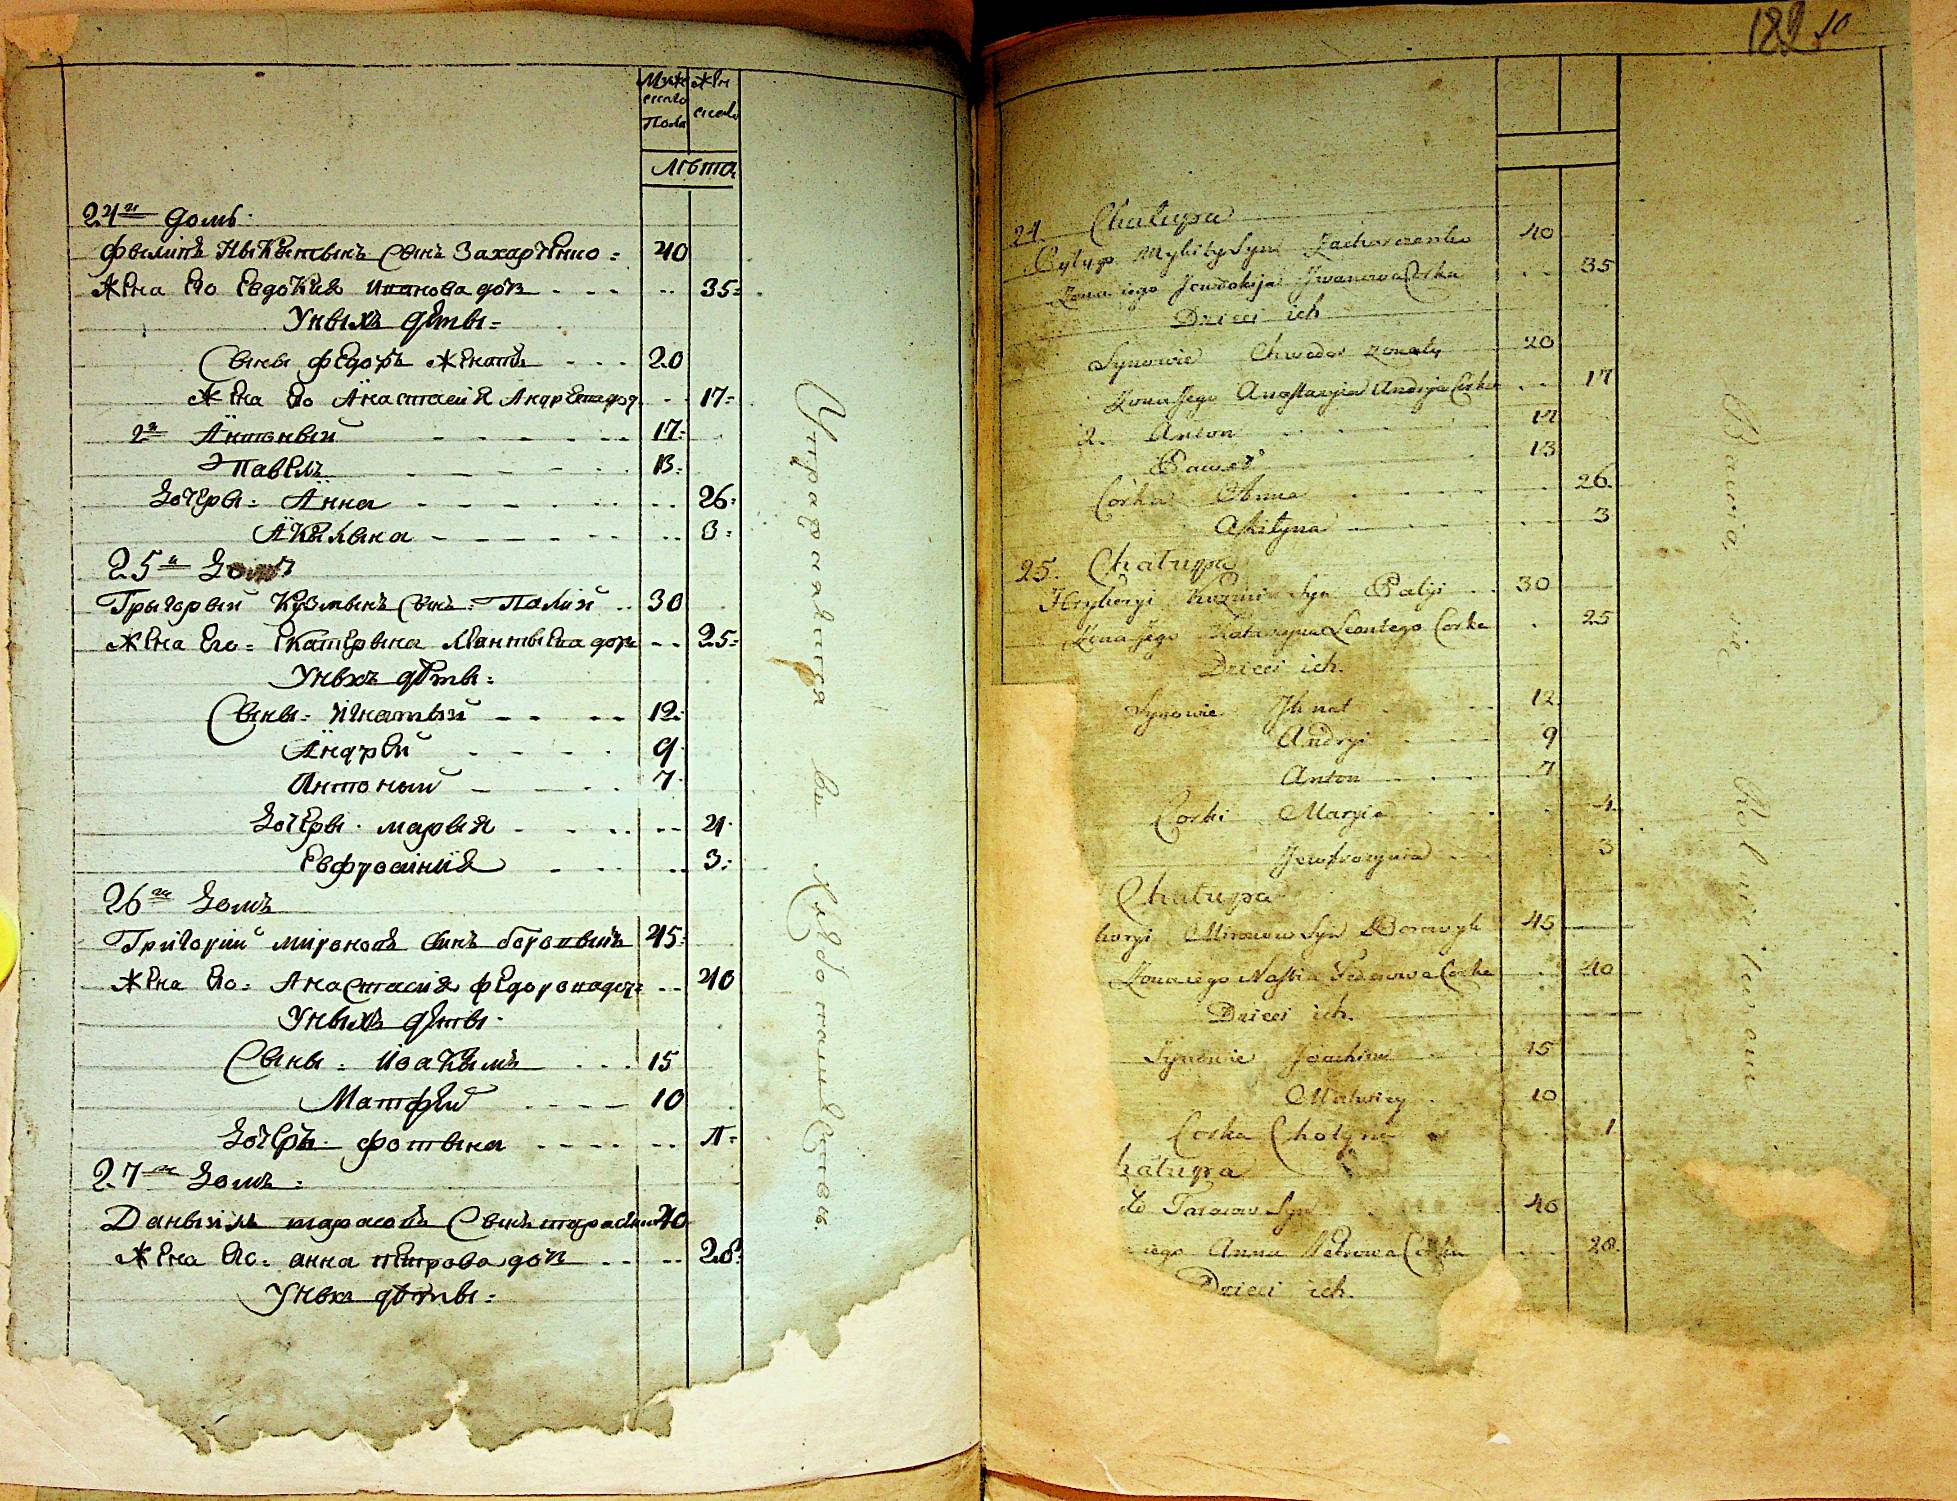 Мужескаго Пола
Женскаго
Лѣта
24й домъ
Филипъ Никитинъ Сынъ Захарченко 40
Жена Его Евдокия Иванова дочь 35
У нихъ дѣти
Сыны Федоръ Женатъ 20
Жена Его Анастасия Андреева доч 17
2й Антоний 17
Павелъ 13
Дочери Анна 26
Акилина 3
25й Домъ
Григорий Кузминъ Сынъ Палий 30
Жена Его Екатерина Леонтиева дочь 25
У нихъ дѣти
Сыны Игнатий 12
Андрей 9
Антоний 7
Дочери мария 4
Евфросиния 3
26й Домъ
Григорий мироновъ сынъ боровикъ 45
Жена Его Анастасия федорова доч 40
У нихъ дѣти
Сыны Иоакимъ 15
Матфей 10
Дочерь фотина
27й Домъ
Даниилъ тарасовъ Сынъ 40
Жена Его анна петрова доч 28
У нихъ дѣти
Упражняются въ Хлебопашестве
182 10
24 Chałupa
Pylyp Mykity Syn Zacharczenko 40
Zona iego Jewdokija Iwanowa Corka 35
Dzieci ich
Synowie Chwedor zonaty 20
Zona Jego Anastazyia Andryia Corka 17
2. Anton 17
Paweł 13
Corka Anna 26
Akilyna 3
25. Chałupa
Hryhoryi Kuzmi Syn Palyi 30
Zona Jego Katarzyna Leontego Corka 25
Dzieci ich.
Synowie Ihnat 12
Andryi 9
Anton 7
Corki Maryia 4
Jewfrozynia 3
Chałupa
horyi Mironow Syn Borowyk 45
Zona iego Nastia Federowa Corka 40
Dzieci ich.
Synowie Joachim 15
Matwiey 10
Corka Chotyna 1
hałupa
Tarasow Syn 40
iego Anna Petrowa Corka 28
Dzieci ich.
Bawią się